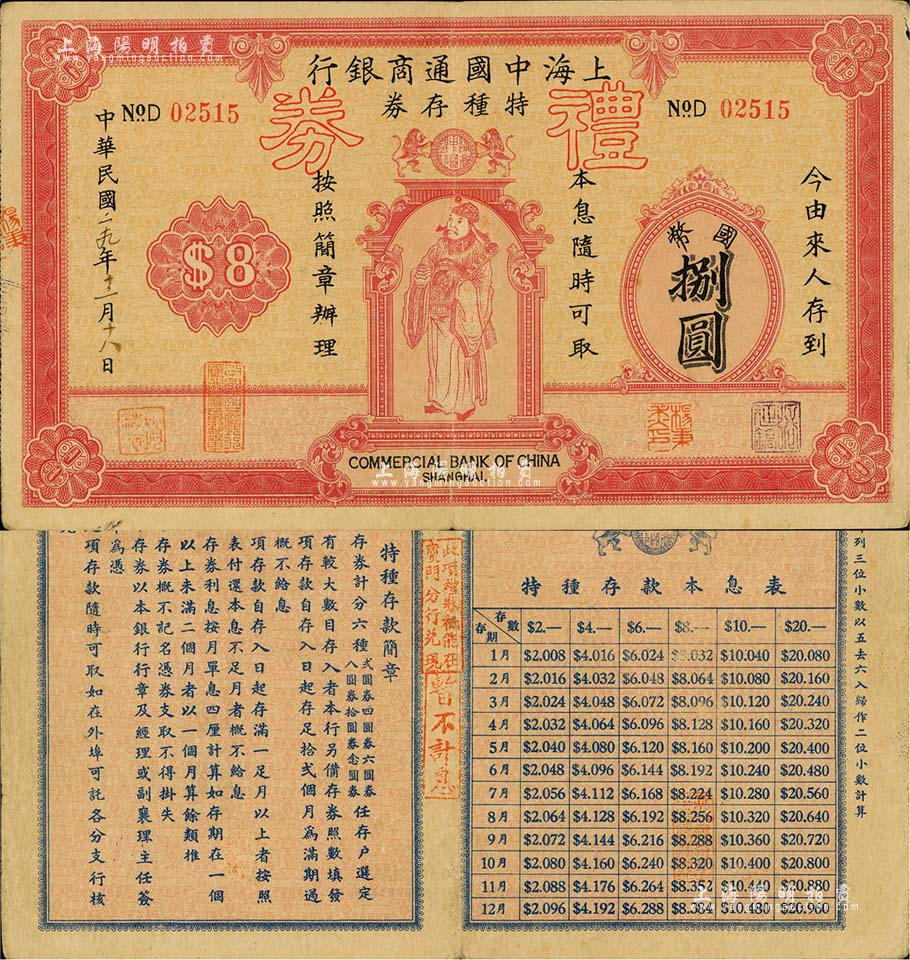 上海陽明拍賣
www.yangmingauction.com
上海中國通商銀行
特種存券
禮券
NoD 02515
NoD 02515
今由來人存到
國幣
捌圓
本息隨時可取
按照簡章辦理
$8
中華民國二九年十二月十八日
COMMERCIAL BANK OF CHINA
SHANGHAI.
上海陽明拍賣
www.yangmingauction.com
列三位小數以五去六入歸作二位小數計算
特種存款本息表
存數 存期 $2.— $4.— $6.— $8.— $10.— $20.—
1月 $2.008 $4.016 $6.024 $8.032 $10.040 $20.080
2月 $2.016 $4.032 $6.048 $8.064 $10.080 $20.160
3月 $2.024 $4.048 $6.072 $8.096 $10.120 $20.240
4月 $2.032 $4.064 $6.096 $8.128 $10.160 $20.320
5月 $2.040 $4.080 $6.120 $8.160 $10.200 $20.400
6月 $2.048 $4.096 $6.144 $8.192 $10.240 $20.480
7月 $2.056 $4.112 $6.168 $8.224 $10.280 $20.560
8月 $2.064 $4.128 $6.192 $8.256 $10.320 $20.640
9月 $2.072 $4.144 $6.216 $8.288 $10.360 $20.720
10月 $2.080 $4.160 $6.240 $8.320 $10.400 $20.800
11月 $2.088 $4.176 $6.264 $8.352 $10.440 $20.880
12月 $2.096 $4.192 $6.288 $8.384 $10.480 $20.960
此項禮券祗能在
廈門分行兌現
暫不計息
特種存款簡章
存券計分六種 弍圓券四圓券六圓券 八圓券拾圓券念圓券 任存戶選定
有較大數目存入者本行另備存券照數填發
項存款自存入日起存足拾弍個月為滿期過
概不給息
項存款自存入日起存滿一足月以上者按照
表付還本息不足月者概不給息
存券利息按月單息四厘計算如存期在一個
以上未滿二個月者以一個月算餘類推
存券概不記名憑券支取不得掛失
存券以本銀行行章及經理或副襄理主任簽
為憑
項存款隨時可取如在外埠可託各分支行核
上海陽明拍賣
www.yangmingauction.com